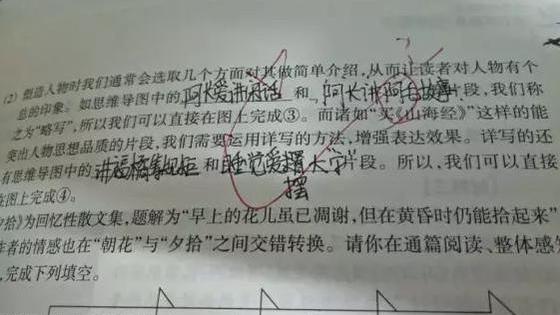 (2) 塑造人物时我们通常会选取几个方面对其做简单介绍,从而让读者对人物有个
总的印象。如思维导图中的阿长爱讲闲话和“阿长讲阿长故事片段,我们称
之为“略写”,所以我们可以直接在图上完成③。而诸如“买《山海经》”这样的能
突出人物思想品质的片段,我们需要运用详写的方法,增强表达效果。详写的还
有思维导图中的讲福橘等规矩和睡觉爱摆“大字”片段。所以,我们可以直接
摆
在图上完成④。
夕拾》为回忆性散文集,题解为“早上的花儿虽已凋谢,但在黄昏时仍能拾起来”
作者的情感也在“朝花”与“夕拾”之间交错转换。请你在通篇阅读、整体感知
,完成下列填空。